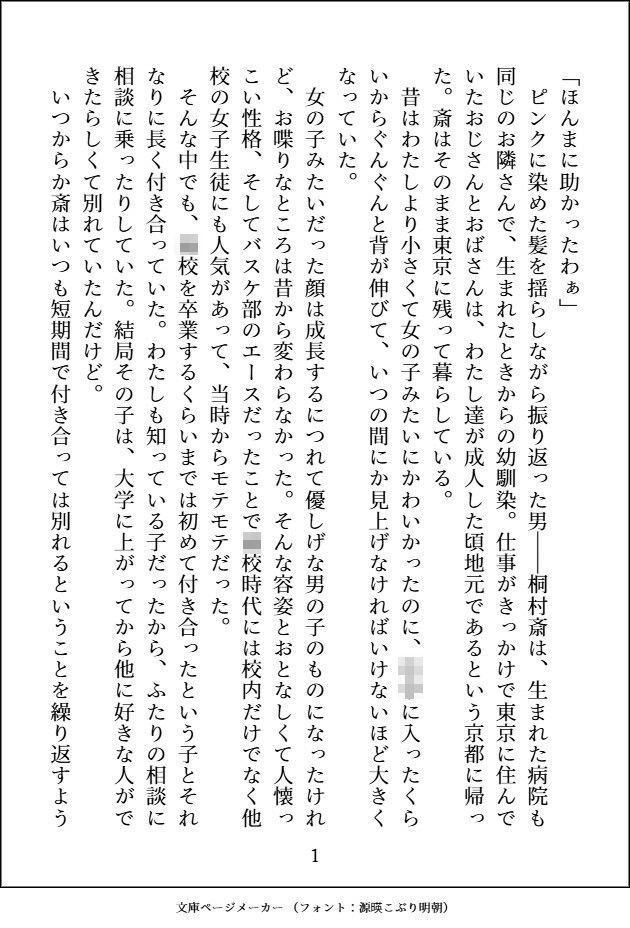 「ほんまに助かったわぁ」
　ピンクに染めた髪を揺らしながら振り返った男――桐村斎は、生まれた病院も
同じのお隣さんで、生まれたときからの幼馴染。仕事がきっかけで東京に住んで
いたおじさんとおばさんは、わたし達が成人した頃地元であるという京都に帰っ
た。斎はそのまま東京に残って暮らしている。
　昔はわたしより小さくて女の子みたいにかわいかったのに、に入ったくら
いからぐんぐんと背が伸びて、いつの間にか見上げなければいけないほど大きく
なっていた。
　女の子みたいだった顔は成長するにつれて優しげな男の子のものになったけれ
ど、お喋りなところは昔から変わらなかった。そんな容姿とおとなしくて人懐っ
こい性格、そしてバスケ部のエースだったことで校時代には校内だけでなく他
校の女子生徒にも人気があって、当時からモテモテだった。
　そんな中でも、校を卒業するくらいまでは初めて付き合ったという子とそれ
なりに長く付き合っていた。わたしも知っている子だったから、ふたりの相談に
相談に乗ったりしていた。結局その子は、大学に上がってから他に好きな人がで
きたらしくて別れていたんだけど。
　いつからか斎はいつも短期間で付き合っては別れるということを繰り返すよう
1
文庫ページメーカー （フォント：源暎こぶり明朝）